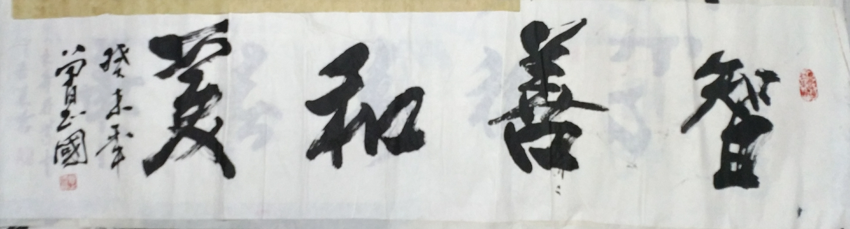 智善和美
癸未年
曾玉國